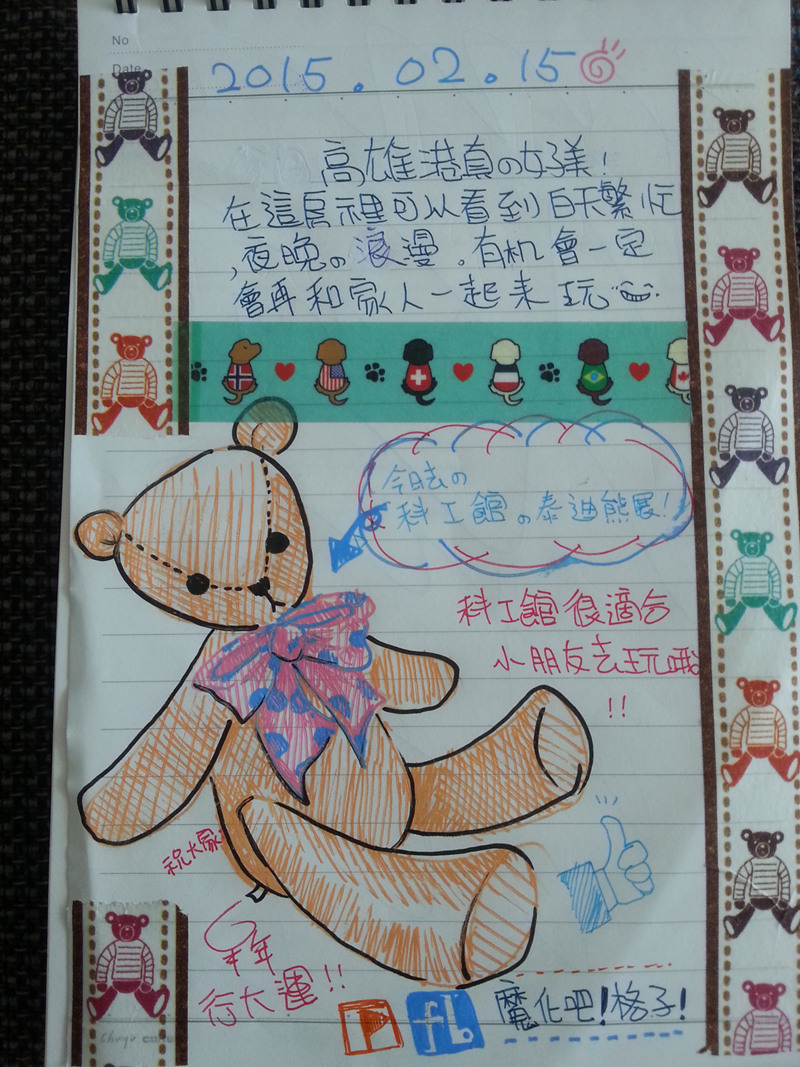 No
Date
2015.02.15
高雄港真の好美！
在這房裡可以看到白天繁忙
，夜晚の浪漫。有机會一定
會再和家人一起来玩
今日去の
科工館の泰迪熊展！
科工館很適合
小朋友去玩哦
!!
祝大家
羊年
行大運!!
P fb.
魔化吧！格子！